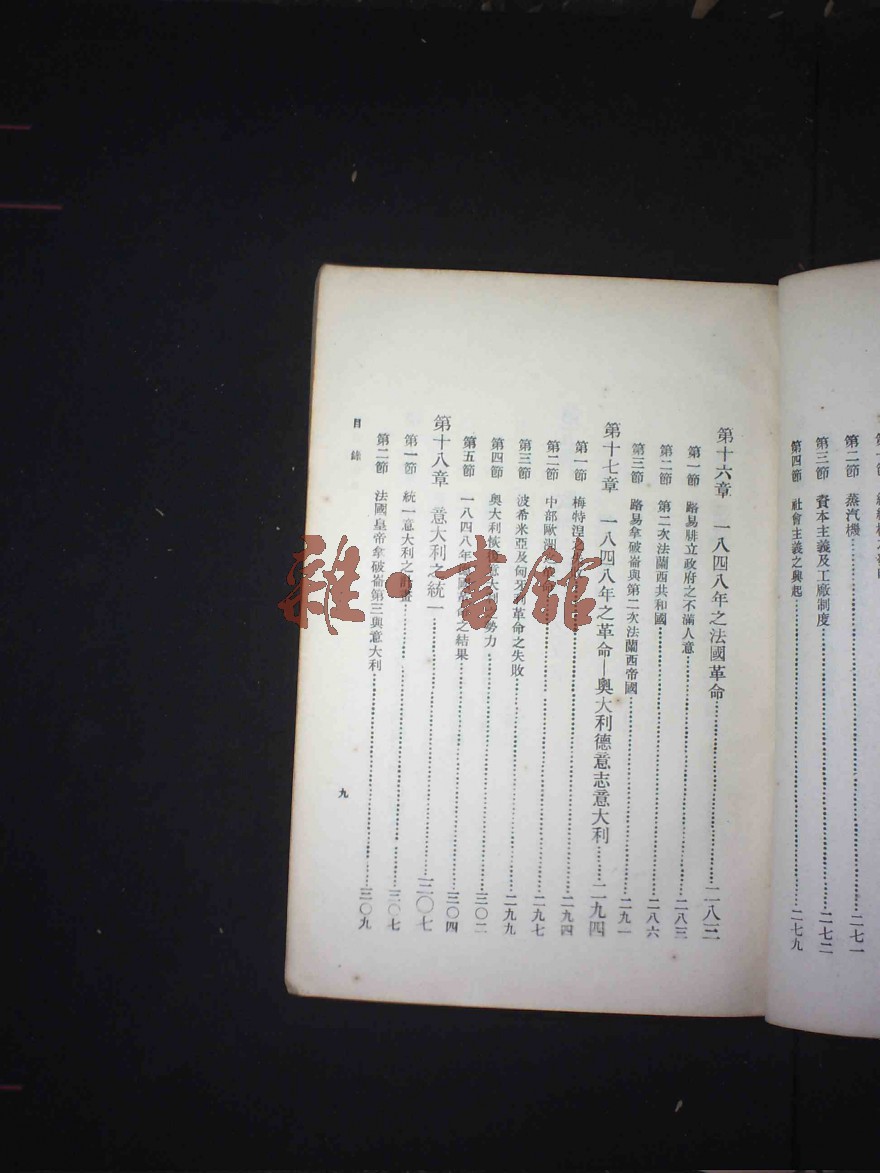 第二節 蒸汽機 二七一
第三節 資本主義及工廠制度 二七二
第四節 社會主義之興起 二七九
第十六章 一八四八年之法國革命 二八三
第一節 路易腓立政府之不滿人意 二八三
第二節 第二次法蘭西共和國 二八六
第三節 路易拿破崙與第二次法蘭西帝國 二九一
第十七章 一八四八年之革命—奧大利德意志意大利 二九四
第一節 梅特涅 二九四
第二節 中部歐洲 二九七
第三節 波希米亞及匈牙利革命之失敗 二九九
第四節 奧大利恢復意大利 勢力 三〇二
第五節 一八四八年 之結果 三〇四
第十八章 意大利之統一 三〇七
第一節 統一意大利之 三〇七
第二節 法國皇帝拿破崙第三與意大利 三〇九
目錄
九
雜·書館